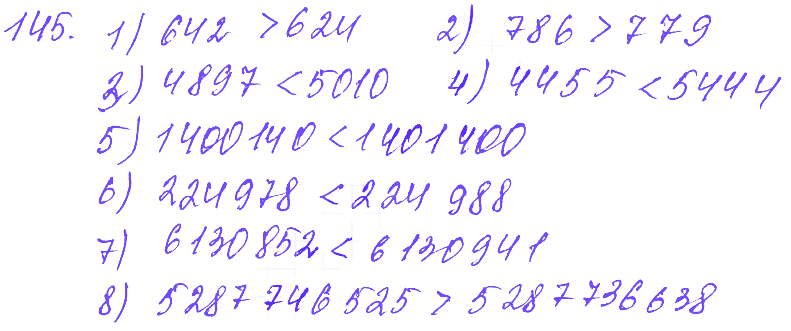 145. 1) 642 > 624 2) 786 > 779
3) 4897 < 5010 4) 4455 < 5444
5) 1400140 < 1401400
6) 224978 < 224 988
7) 6130852 < 6130941
8) 5287 746 525 > 5287736638